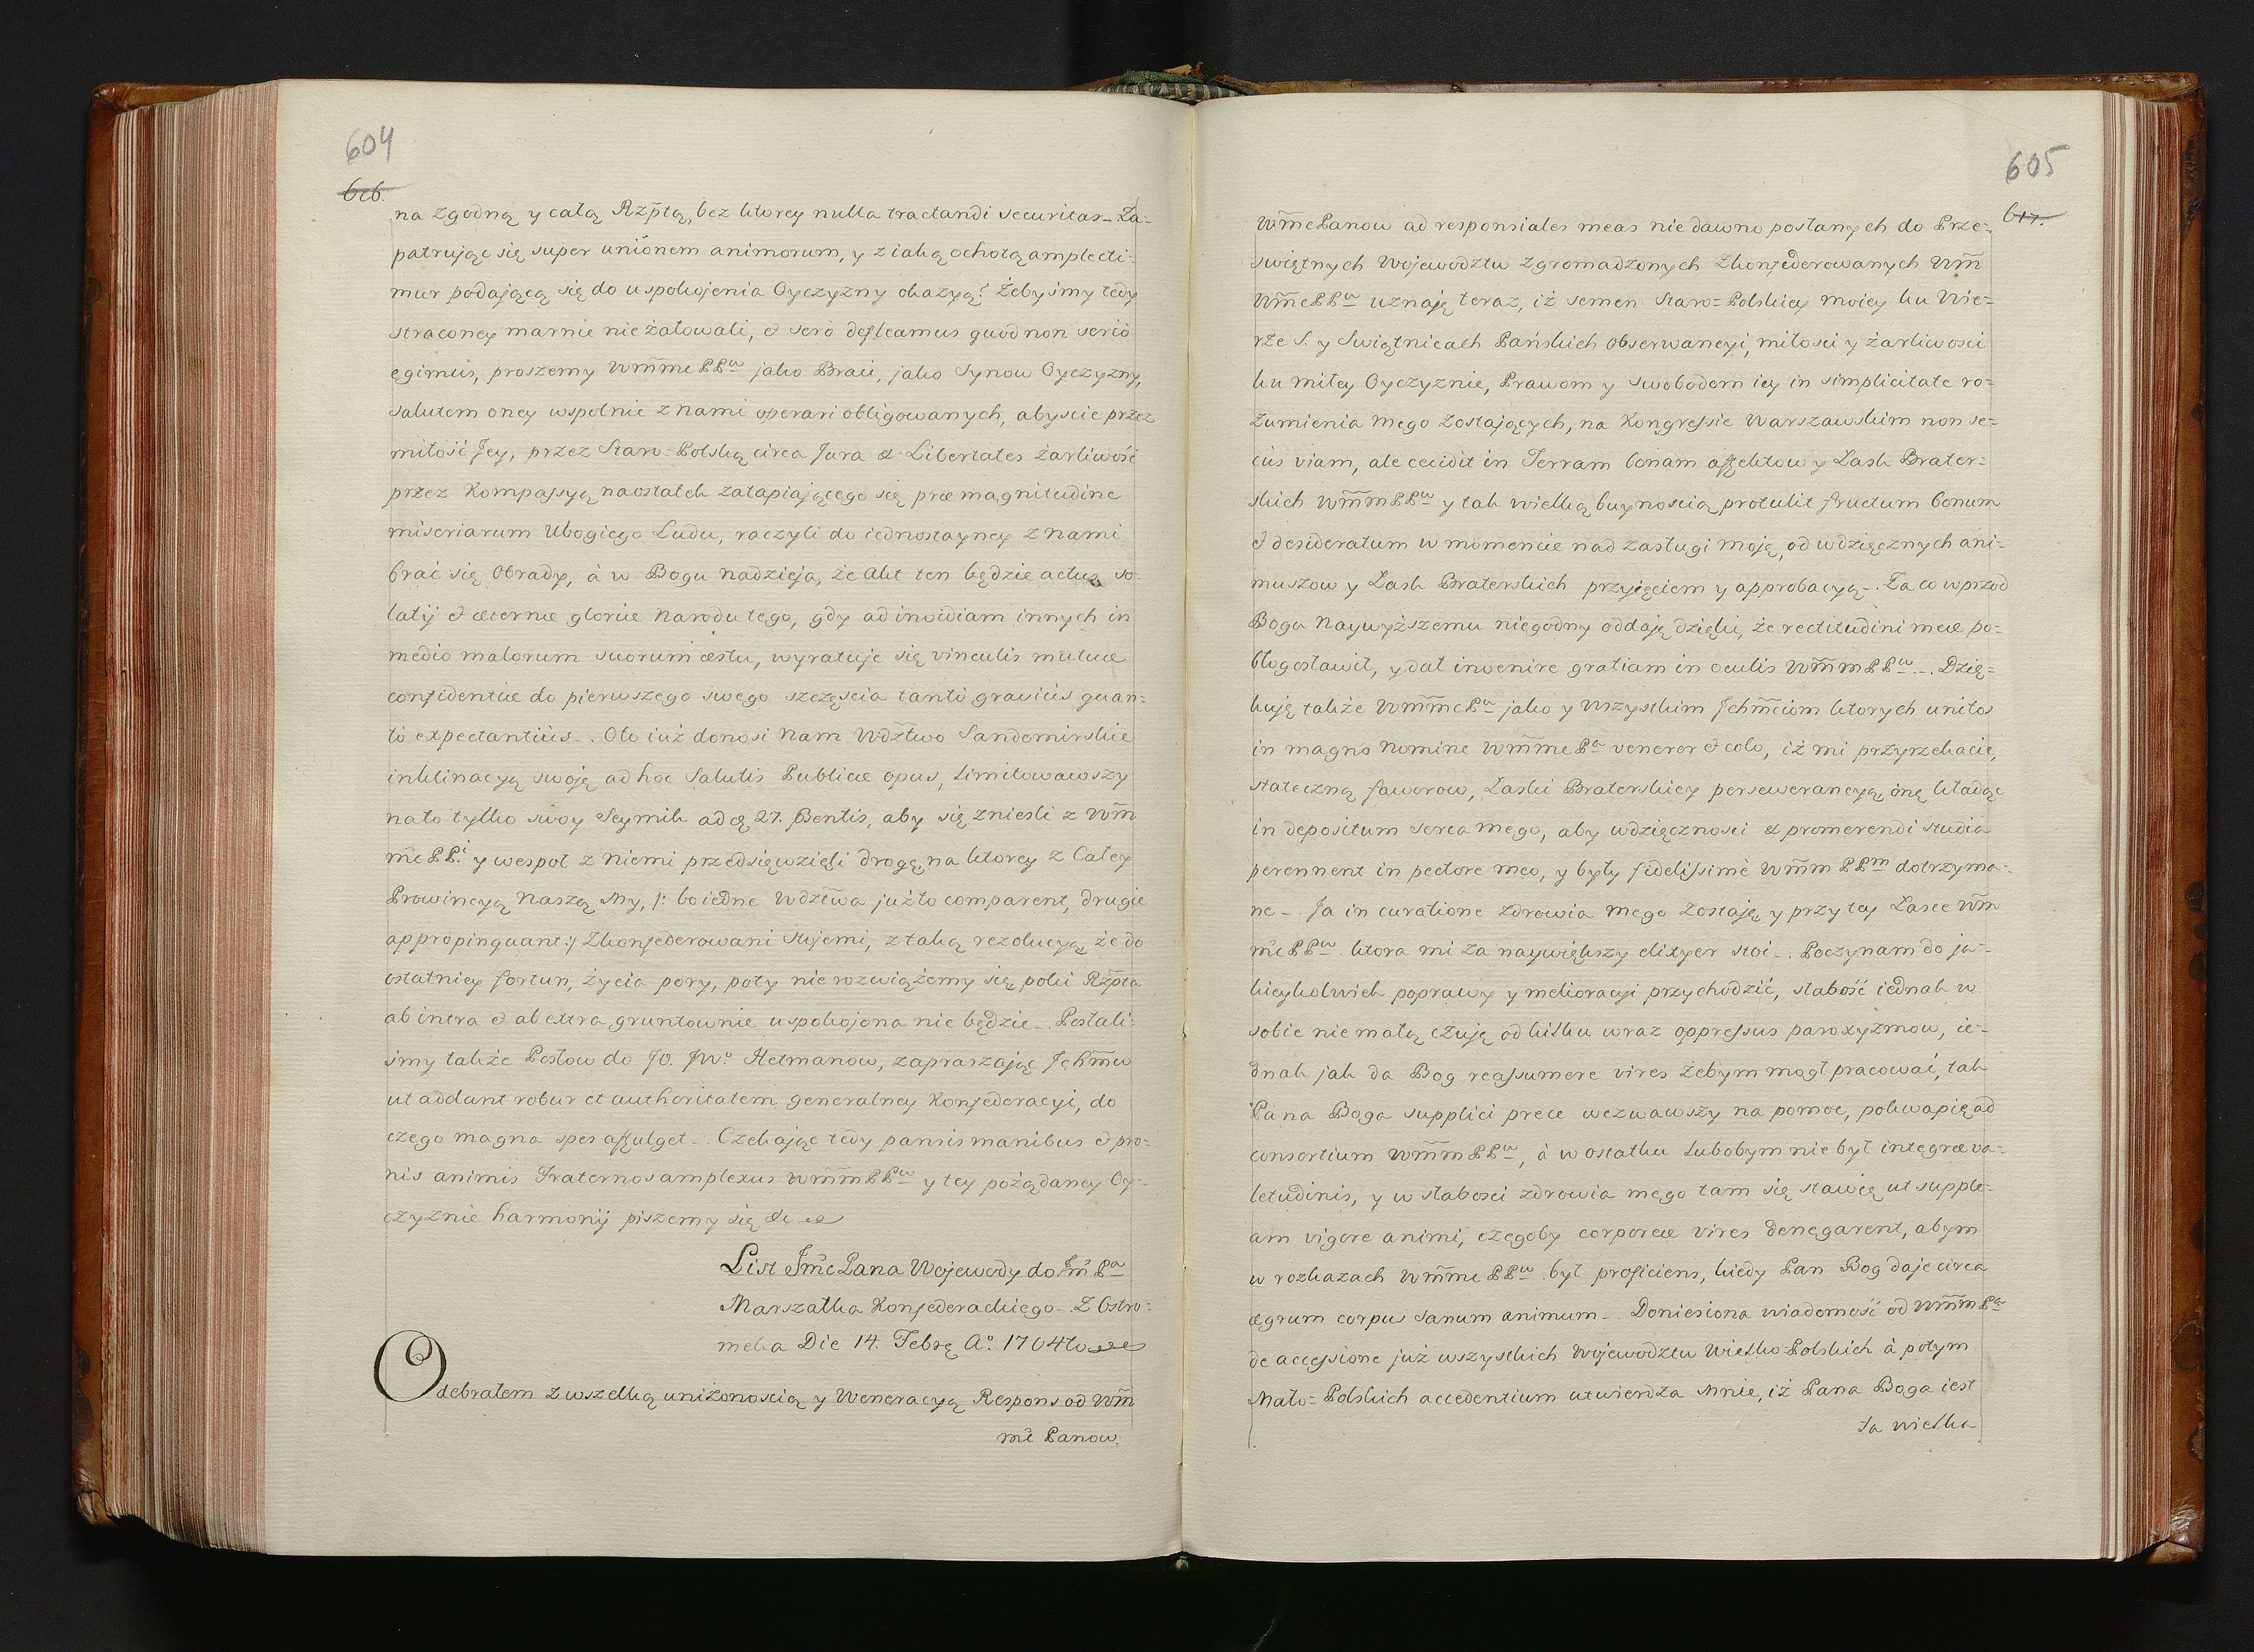 604
616.
na zgodną y całą Rzptą, bez ktorey nulla tractandi securitas_. Za=
patrując się super unionem animorum, y z iaką ochotą amplecti=
mur podającą się do uspokojenia Oyczyzny okazyą? Żebyśmy tedy
straconey marnie nie żałowali, & serò defleamus quod non seriò
egimus, proszemy Wm̃me PPw jako Braci, jako Synow Oyczyzny,
salutem oney wspolnie z nami operari obligowanych, abyscie przez
miłość Jey, przez Staro=Polską circa Jura & Libertates żarliwość
przez Kompassyą naostatek zatapiającego się præ magnitudine
miseriarum Ubogiego Ludu, raczyli do iednostayney z nami
brać się Obrady, à w Bogu nadzieja, że Akt ten będzie actus so=
latij & æternæ gloriæ Narodu tego, gdy ad invidiam innych in
medio malorum suorum æstu, wyratuje się vinculis mutuæ
confidentiæ do pierwszego swego szczęscia tantò graviùs quan=
tò expectantiùs_. Oto iuż donosi Nam Wdztwo Sandomirskie
inklinacyą swoją ad hoc Salutis Publicæ opus, limitowawszy
nato tylko swoy Seymik ad 27. Pñtis, aby się zniesli z Wm̃
m̃e PP.i y wespoł z niemi przedsięwzięli drogę, na ktorey z Całey
Prowincyą Naszą My, /: bo iedne Wdztwa już to comparent, drugie
appropinquant :/ Skonfederowani stojemi, z taką rezolucyą, że do
ostatniey fortun, życia pory, poty nie rozwiążemy się, poki Rzpta
ab intra & ab extra gruntownie uspokojona nie będzie_. Posłali=
śmy także Posłow do JO. JWo Hetmanow, zapraszając Jchm̃w
ut addant robur et authoritatem generalney Konfederacyi, do
czego magna spes affulget_. Czekając tedy pansis manibus & pro=
nis animis Fraternos amplexus Wm̃mPPw y tey pożądaney Oy=
czyznie harmonij piszemy się &c
List Jm̃c Pana Wojewody do Jm̃ Pa
Marszałka Konfederackiego_. Z Ostro=
mecka Die 14. Febrę Ao. 1704to
Odebrałem z wszelką uniżonością y Weneracyą Respons od Wm̃
m̃e Panow.
605
617.
Wm̃cPanow ad responsiales meas nie dawno posłanych do Prze=
swiętnych Wojewodztw Zgromadzonych Skonfederowanych Wm̃
Wm̃cPPw uznaję teraz, iż semen Staro=Polskiey moiey ku Wie=
rze S. y Swiątnicach Pańskich Obserwancyi, miłosci y żarliwosci
ku miłey Oyczyznie, Prawom y swobodom iey in simplicitate ro=
zumienia mego zostających, na Kongressie Warszawskim non se=
cùs viam, ale cecidit in Terram bonam affektow y Łask Brater=
skich Wm̃mPPw y tak wielką buynoscią protulit fructum bonum
& desideratum w momencie nad zasługi moję, od wdzięcznych ani=
muszow y Łask Braterskich przyjęciem y approbacyą_. Za co wprzod
Bogu Naywyższemu niegodny oddaję dzięki, że rectitudini meæ po=
błogosławił, y dał invenire gratiam in oculis Wm̃mPPw_. Dzię=
kuję także Wm̃mcPw jako y Wszystkim Jchm̃ciom ktorych unitos
in magno Nomine Wm̃mePa veneror & colo, iż mi przyrzekacie,
stateczną faworow, Łaski Braterskiey perseverancyą, onę kładąc
in depositum serca mego, aby wdzięcznosci & promerendi studia
perennent in pectore meo, y były fidelissimè Wm̃m PPm dotrzyma=
ne_. Ja in curatione zdrowia mego zostaję y przy tey Łasce Wm̃
m̃cPPw. ktora mi za naywiększy elixyer stoi_. Poczynam do ja=
kieykolwiek poprawy y melioracyi przychodzić, słabość iednak w
sobie nie małą czuję od kilku wraz oppressus paroxyzmow, ie=
dnak jak da Bog reassumere vires żebym mogł pracować, tak
Pana Boga supplici prece wezwawszy na pomoc, pokwapię ad
consortium Wm̃mPPw, à w ostatku lubobym nie był integræ va=
letudinis, y w słabosci zdrowia mego tam się stawię ut supple=
am vigore animi, czegoby corporeæ vires denegarent, abym
w rozkazach Wm̃me PPw był proficiens, kiedy Pan Bog daje circa
ægrum corpus Sanum animum_. Doniesiona wiadomość od Wm̃mPa
de accessione już wszystkich Wojewodztw Wielko=Polskich à potym
Mało=Polskich accedentium utwierdza Mnie, iż Pana Boga iest
ta wielka